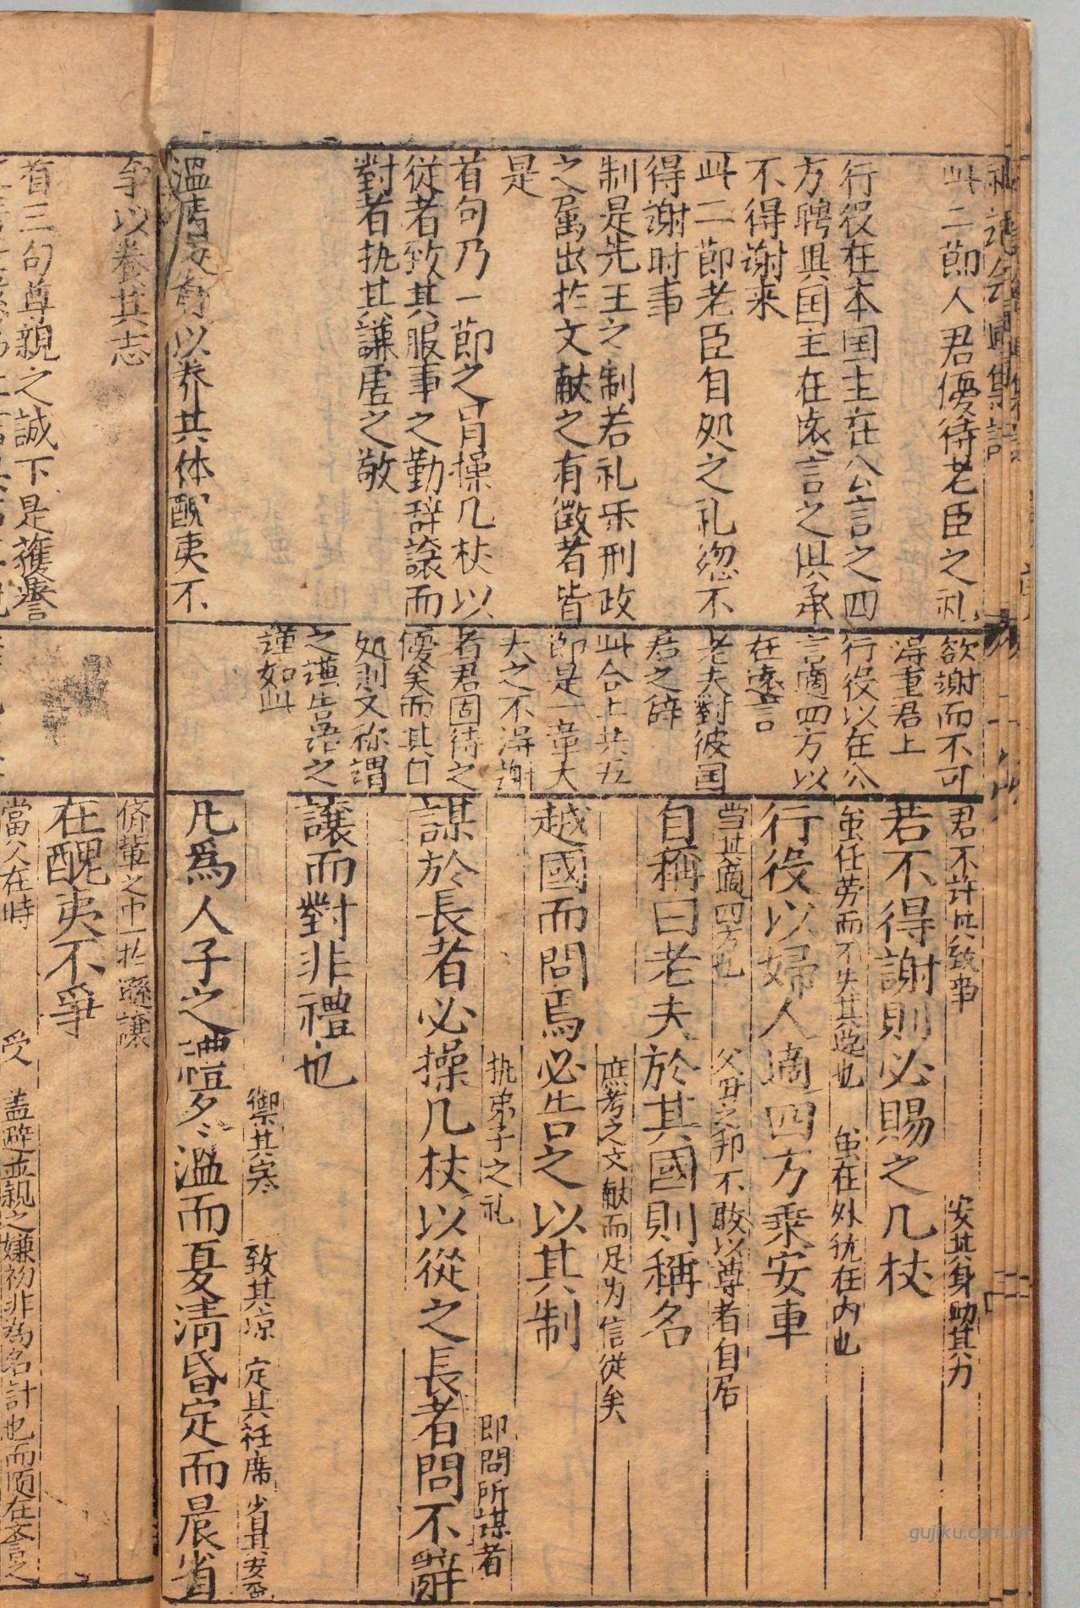 此二節人君優待老臣之礼
行役在本国主在公言之四
方聘與国主在遠言之俱承
不得谢来
此二節老臣自処之礼緫不
得謝时事
制是先王之制若礼乐刑政
之属出扵文献之有徵者皆
是
首句乃一節之冐操几杖以
從者致其服事之勤辞譲而
對者执其謙虚之敬
溫凊定省以养其体醜夷不
争以養其志
首三句尊親之誠下是獲譽
欲謝而不可
得重君上
行役以在公
言適四方以
在遠言
老夫對彼国
君之辞
此合上共五
節是一章大
夫之不得謝
者君固待之
優矣而其自
処則又称謂
之谨告语之
谨如此
君不許其致事
安其身助其力
若不得謝則必賜之几杖
虽任劳而不失其逸也
虽在外犹在内也
行役以婦人適四方乘安車
当其適四方也
父母之邦不敢以尊者自居
自稱曰老夫於其國則稱名
庶考之文献而足为信從矣
越國而問焉必告之以其制
执弟子之礼
即問所谋者
謀於長者必操几杖以從之長者問不辭
讓而對非禮也
禦其寒
致其凉
定其衽席
省其安否
凡爲人子之禮冬溫而夏凊昏定而晨省
儕輩之中一扵遜讓
在醜夷不爭
當父在時
受
盖避並親之嫌初非為名計也而